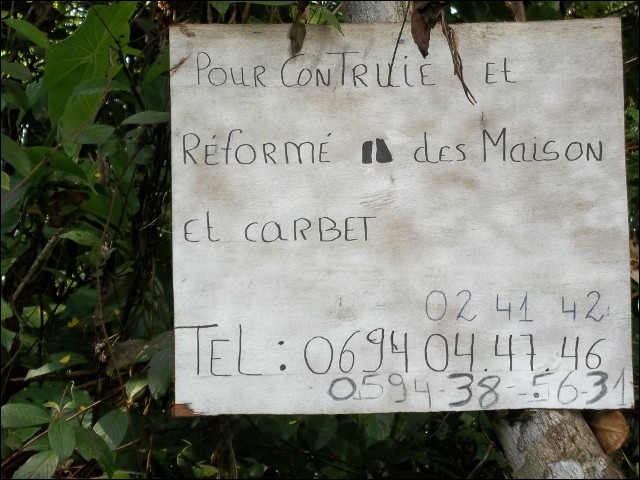 POUR CONTRUIE ET
RÉFORMÉ des MAISON
et CARBET
02 41 42
TEL : 0694 04.47.46
0594-38-56-31